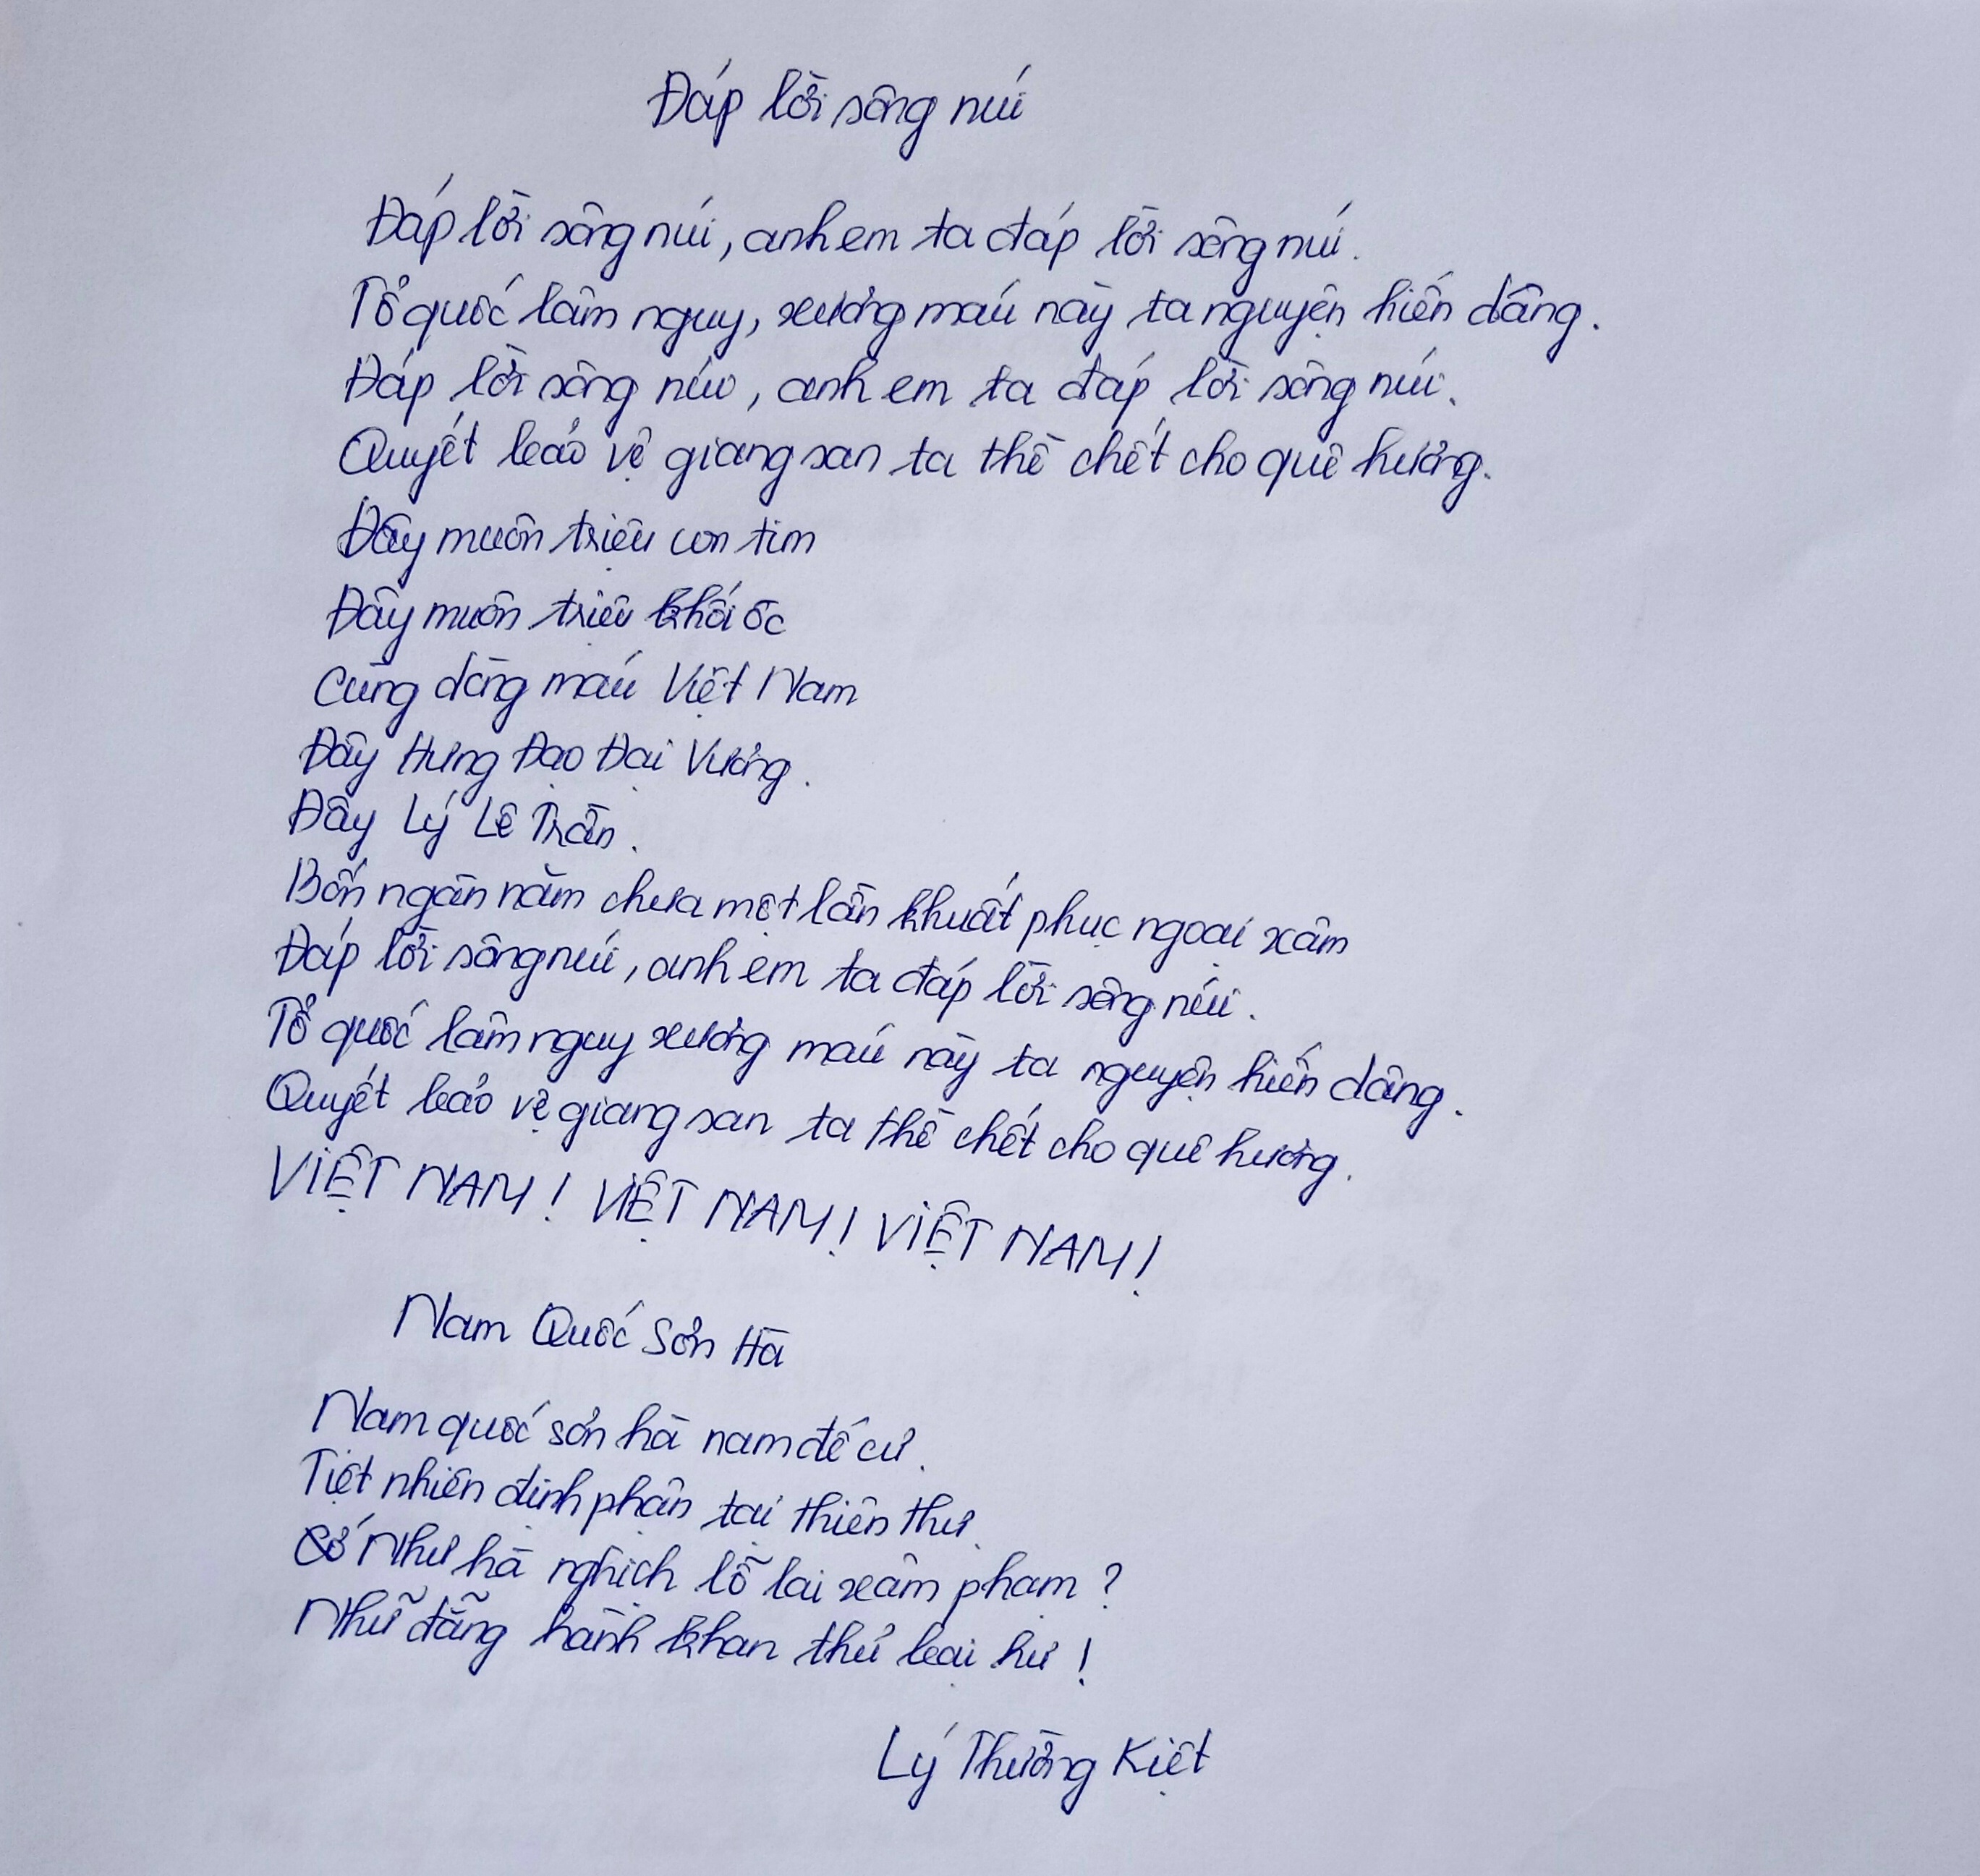 Đáp lời sông núi
Đáp lời sông núi, anh em ta đáp lời sông núi.
Tổ quốc lâm nguy, xương máu này ta nguyện hiến dâng.
Đáp lời sông núi, anh em ta đáp lời sông núi.
Quyết bảo vệ giang san ta thề chết cho quê hương.
Đây muôn triệu con tim
Đây muôn triệu khối óc
Cùng dòng máu Việt Nam
Đây Hưng Đạo Đại Vương.
Đây Lý Lê Trần.
Bốn ngàn năm chưa một lần khuất phục ngoại xâm
Đáp lời sông núi, anh em ta đáp lời sông núi.
Tổ quốc lâm nguy xương máu này ta nguyện hiến dâng.
Quyết bảo vệ giang san ta thề chết cho quê hương.
VIỆT NAM! VIỆT NAM! VIỆT NAM!
Nam Quốc Sơn Hà
Nam quốc sơn hà nam đế cư.
Tiệt nhiên định phận tại thiên thư.
Cớ Như hà nghịch lỗ lai xâm phạm?
Nhữ đẵng hành khan thủ bại hư!
Lý Thường Kiệt